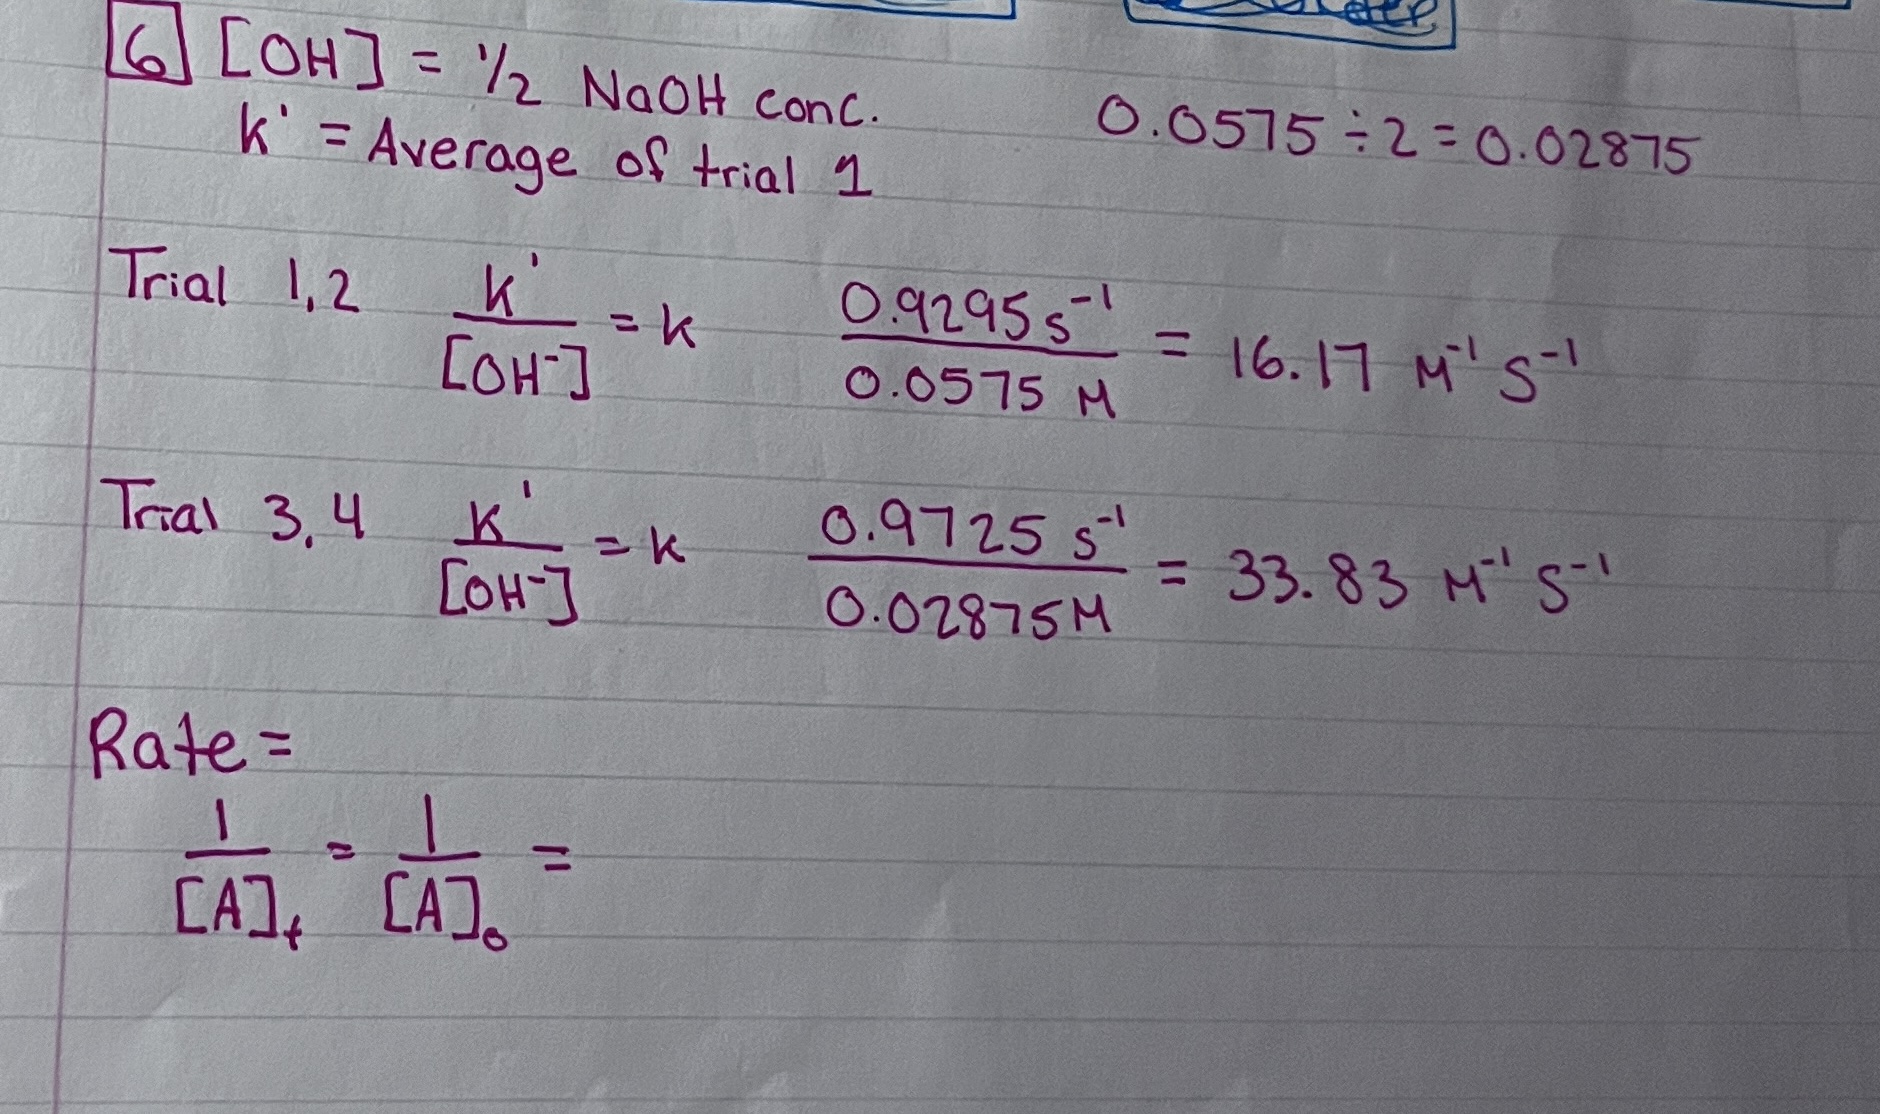 6 [OH] = 1/2 NaOH conc. 0.0575 ÷ 2 = 0.02875
k' = Average of trial 1
Trial 1,2 k'/[OH⁻] = k 0.9295 s⁻¹/0.0575 M = 16.17 M⁻¹ s⁻¹
Trial 3,4 k'/[OH⁻] = k 0.9725 s⁻¹/0.02875 M = 33.83 M⁻¹ s⁻¹
Rate =
1/[A]ₜ = 1/[A]₀ =